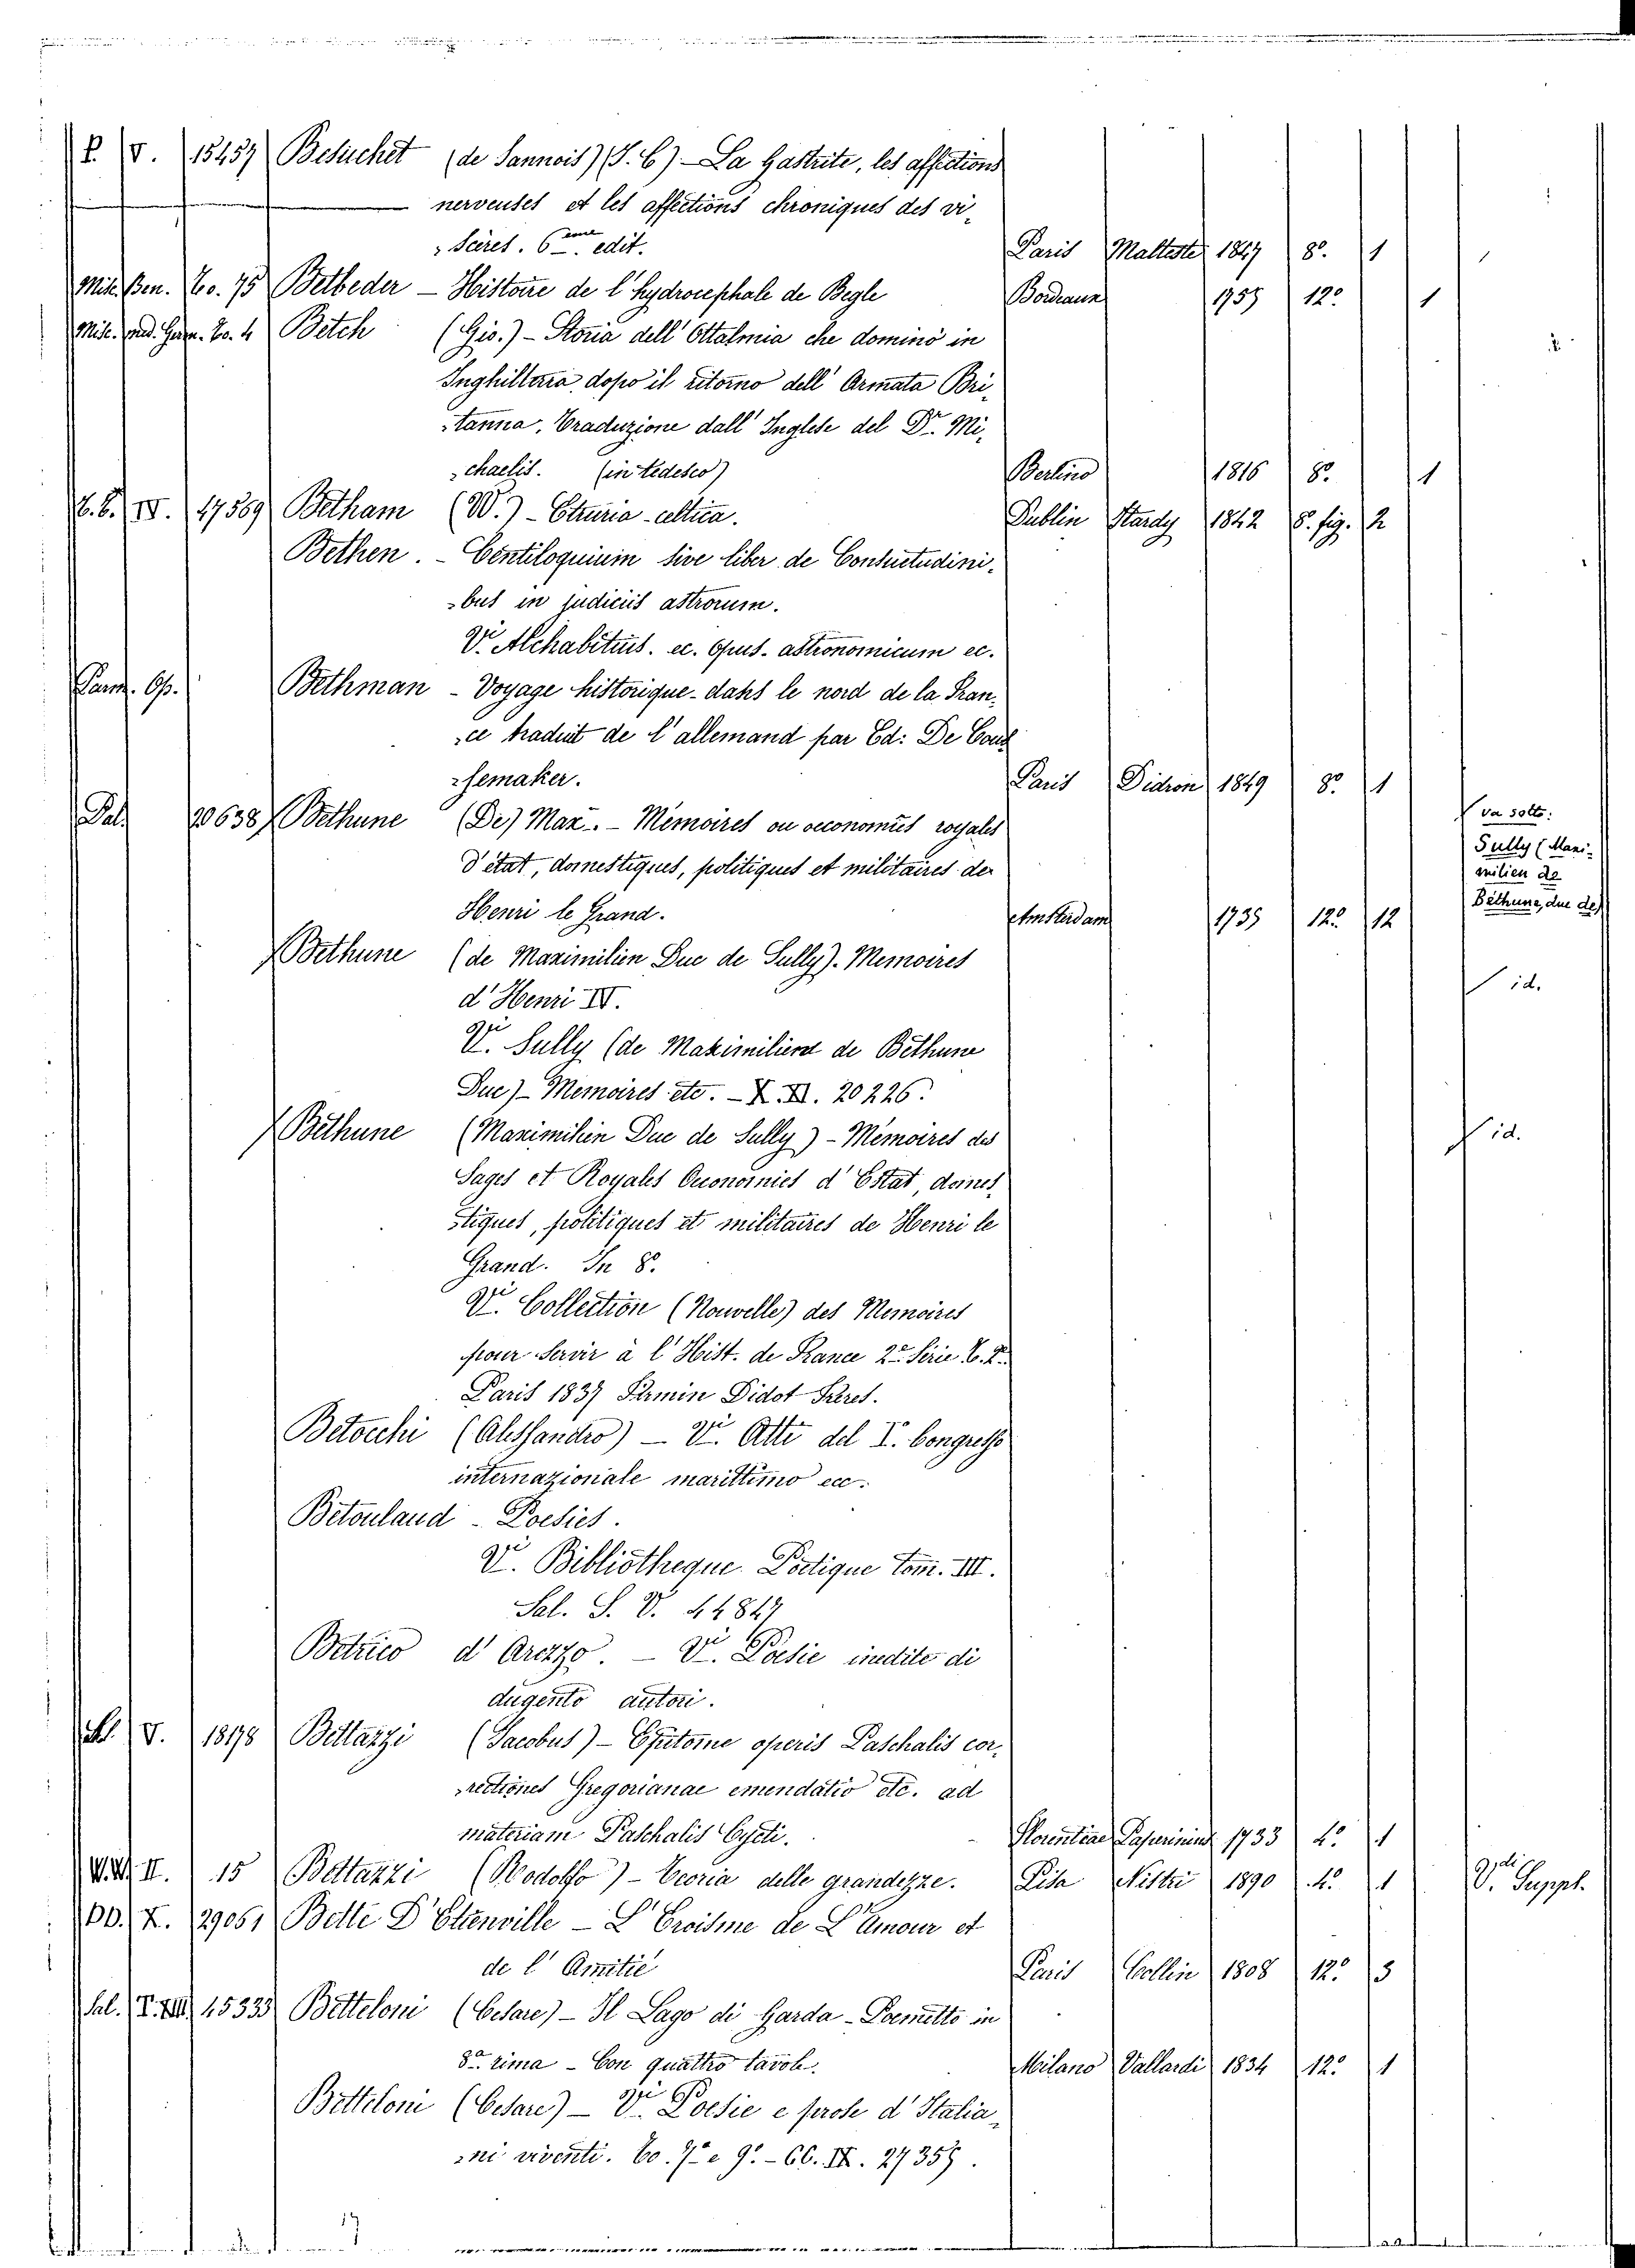 P. V. 15457 Besuchet (de Sannois) (J. C) - La Gastrite, les affections
nerveuses et les affections chroniques des vi-
scères. 6eme edit. Paris Malteste 1847 8º. 1
Misc. Ben. To. 75 Betbeder - Histoire de l'hydrocephale de Begle Bordeaux 1755 12º 1
Misc. med. Germ. To. 4 Betch (Gio.) - Storia dell'Ottalmia che dominò in
Inghilterra dopo il ritorno dell'Armata Bri-
tanna. Traduzione dall'Inglese del Dr. Mi-
chaelis. (in tedesco) Berlino 1816 8º. 1
IV. 17569 Betham (W.) - Etruria-celtica. Dublin Hardy 1842 8. fig. 2
Bethen. - Centiloquium sive liber de Consuetudini-
bus in judiciis astrorum.
Vi Alchabitius. ec. Opus. astronomicum ec.
Bethman - Voyage historique dans le nord de la Fran-
ce traduit de l'allemand par Ed: De Cous
semaker. Paris Didron 1849 8º 1
Pal. 20638 Bethune (De) Max.. - Memoires ou oeconomies royales
d'état, domestiques, politiques et militaires de
Henri le Grand. Amsterdam 1735 12º 12
va sotto:
Sully (Maxi-
milien de
Béthune, duc de)
Bethune (de Maximilien Duc de Sully). Memoires
d'Henri IV.
id.
Vi. Sully (de Maximilien de Bethune
Duc) - Memoires etc. - X. XI. 20226.
Béthune (Maximilien Duc de Sully) - Mémoires des
id.
Sages et Royales Oeconomies d'Estat, domes-
stiques, politiques et militaires de Henri le
Grand. In 8º.
Vi. Collection (Nouvelle) des Memoires
pour servir à l'Hist. de France 2e Série T. 2.
Paris 1837 Firmin Didot Freres.
Betocchi (Alessandro) - Vi. Atti del I. Congresso
internazionale marittimo ec.
Betouland - Poesies.
Vi. Bibliotheque Poëtique Tom. III.
Sal. S. V. 44847
Betrico d'Arezzo. - Vi. Poesie inedite di
dugento autori.
V. 18178 Bettazzi (Jacobus) - Epitome operis Paschalis cor-
rectiones Gregorianae emendatio etc. ad
materiam Paschalis Cycli. Florentiae Paperinius 1733 4º 1
II. 15 Bettazzi (Rodolfo) - Teoria delle grandezze. Pisa Nistri 1890 4º. 1 Vedi Suppl.
X. 29061 Bette D'Etienville - L'Eroisme de L'amour et
de l'Amitié Paris Collin 1808 12º 3
Sal. 45333 Betteloni (Cesare) - Il Lago di Garda - Poemetto in
8a. rima - Con quattro tavole. Milano Vallardi 1834 12º 1
Betteloni (Cesare) - Vi. Poesie e prose d'Italia-
ni viventi. To. 7º e 9º. - CC. IX. 27359.
17